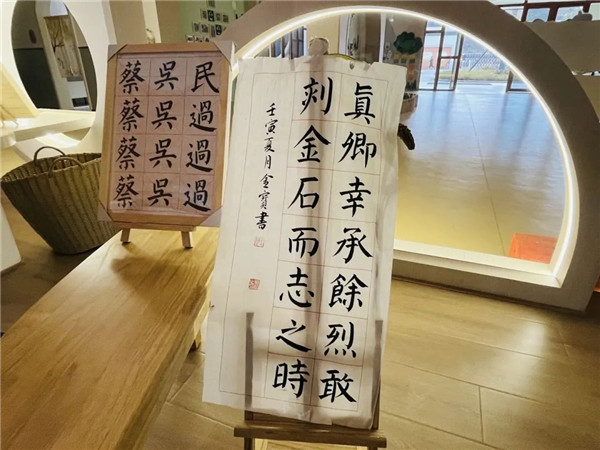 眞卿幸承餘烈敢
刻金石而志之時
壬寅夏月金書
民過過過
吳吳吳吳
蔡蔡蔡蔡